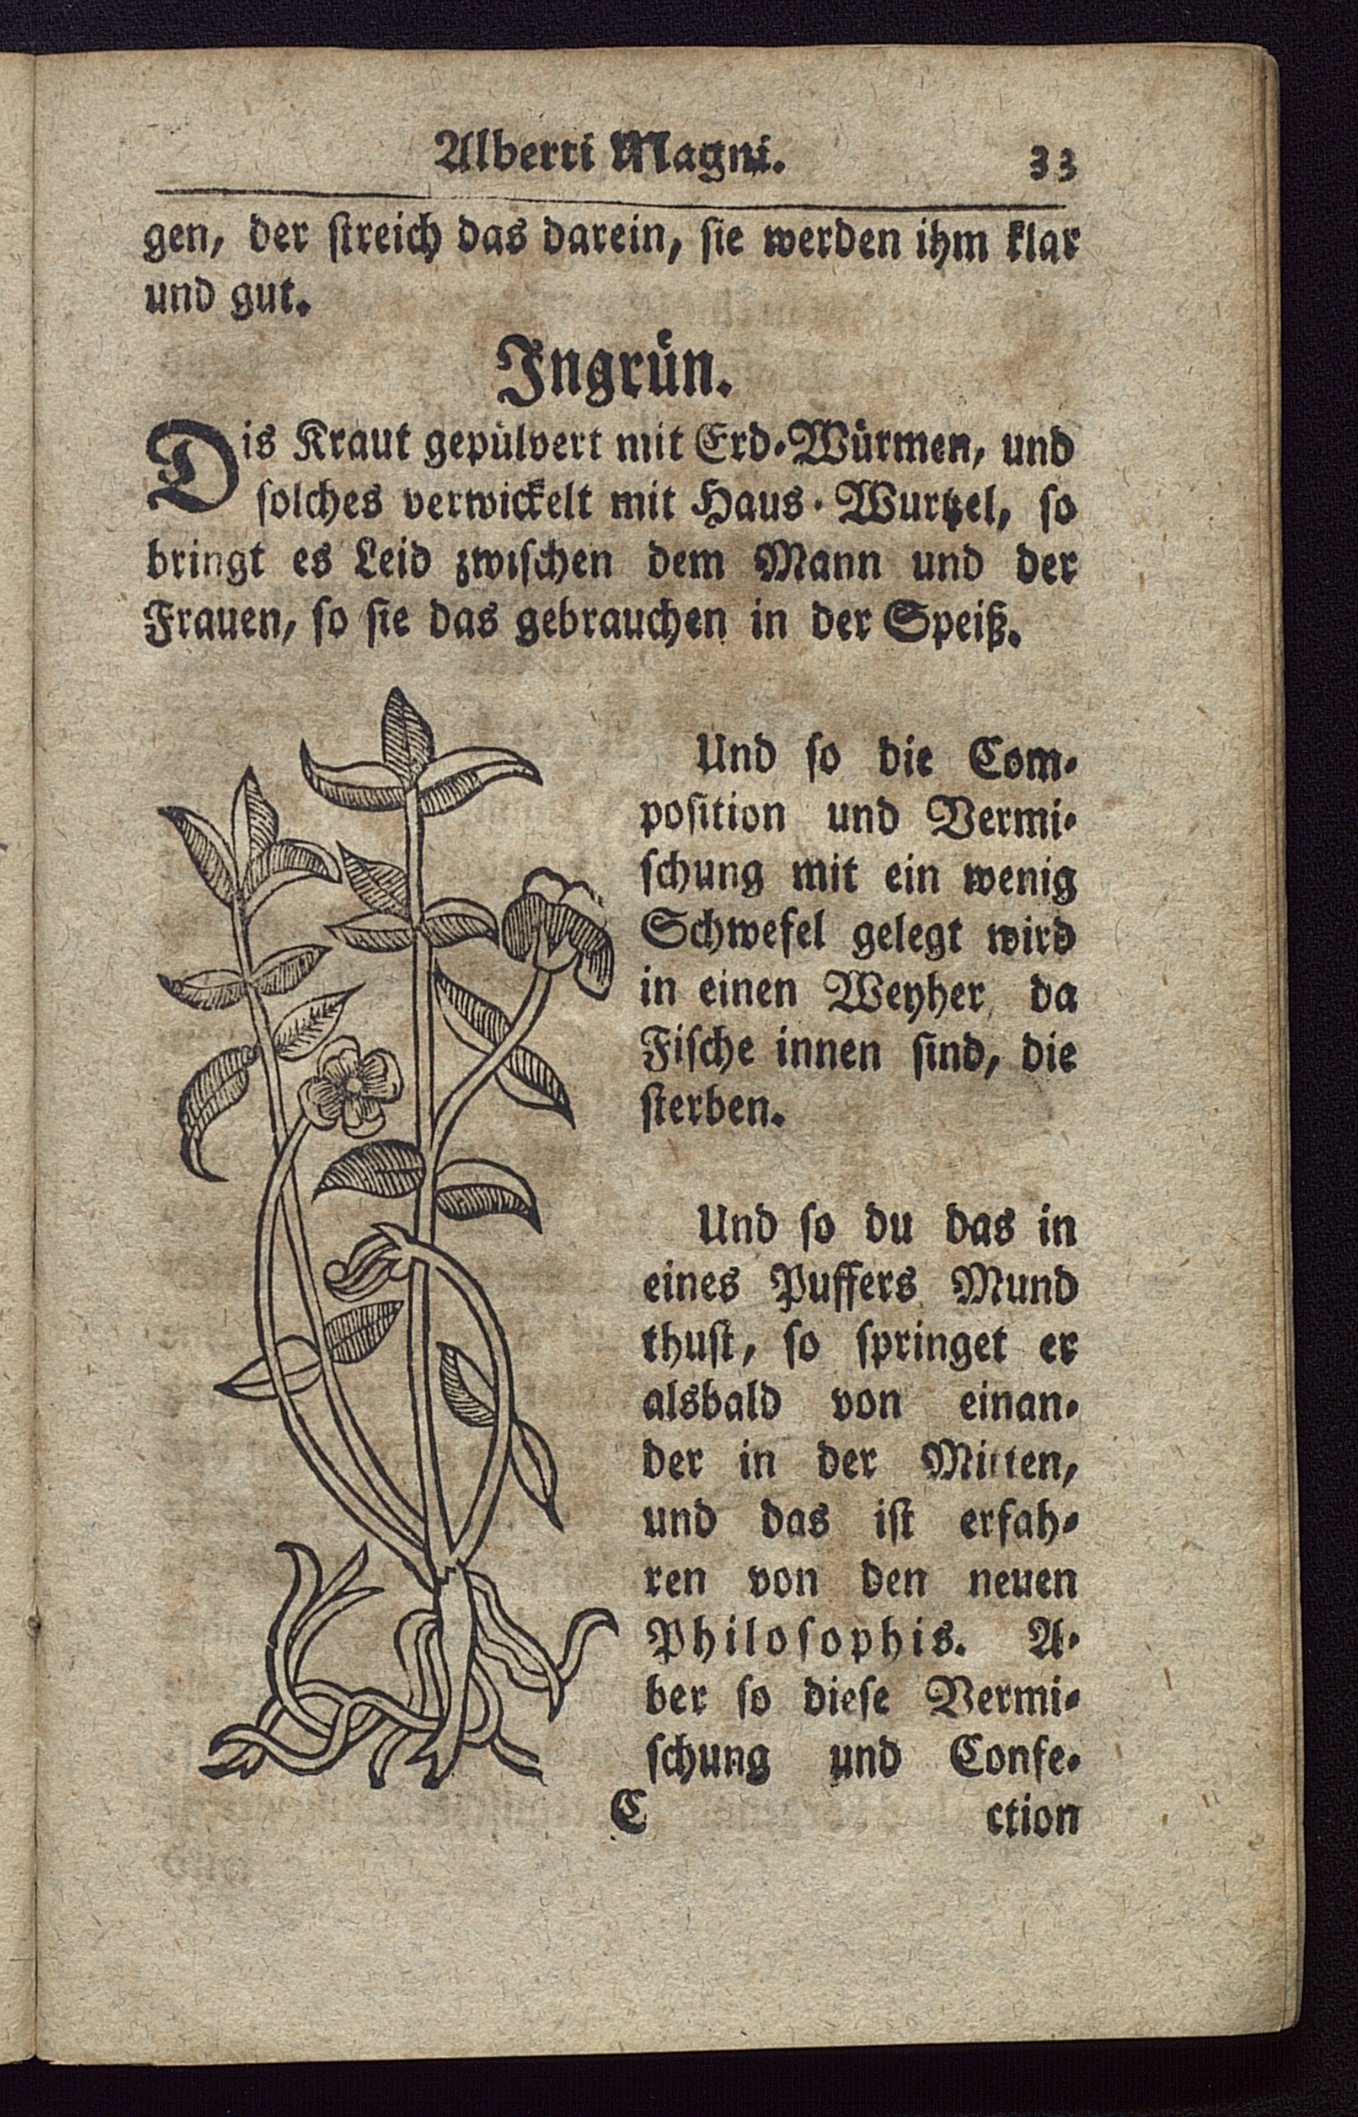 Alberti Magni. 33
gen, der streich das darein, sie werden ihm klar
und gut.
Ingrün.
Dis Kraut gepülvert mit Erd-Würmen, und
solches verwickelt mit Haus-Wurtzel, so
bringt es Leid zwischen dem Mann und der
Frauen, so sie das gebrauchen in der Speiß.
Und so die Com-
position und Vermi-
schung mit ein wenig
Schwefel gelegt wird
in einen Weyher, da
Fische innen sind, die
sterben.
Und so du das in
eines Puffers Mund
thust, so springet er
alsbald von einan-
der in der Mitten,
und das ist erfah-
ren von den neuen
Philosophis. A-
ber so diese Vermi-
schung und Confe-
C ction